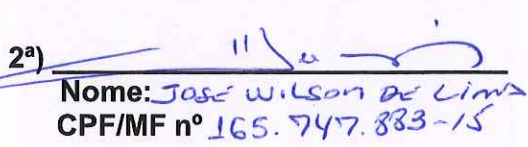 2ª)
Nome: JOSÉ WILSON DE LIMA
CPF/MF nº 165.747.883-15